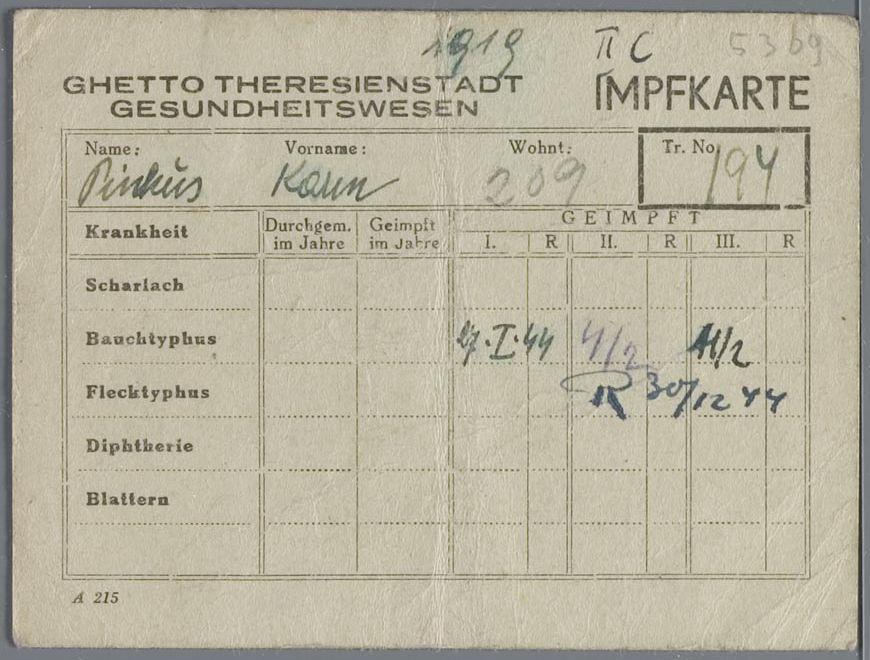 1919 II C 5369
GHETTO THERESIENSTADT
GESUNDHEITSWESEN
IMPFKARTE
Name: Vorname: Wohnt: Tr. No.
Pinkus Karin 209 194
Krankheit Durchgem. im Jahre Geimpft im Jahre GEIMPFT
I. R II. R III. R
Scharlach
Bauchtyphus 27.I.44 4/2 11/2
Flecktyphus R 30/12 44
Diphtherie
Blattern
A 215